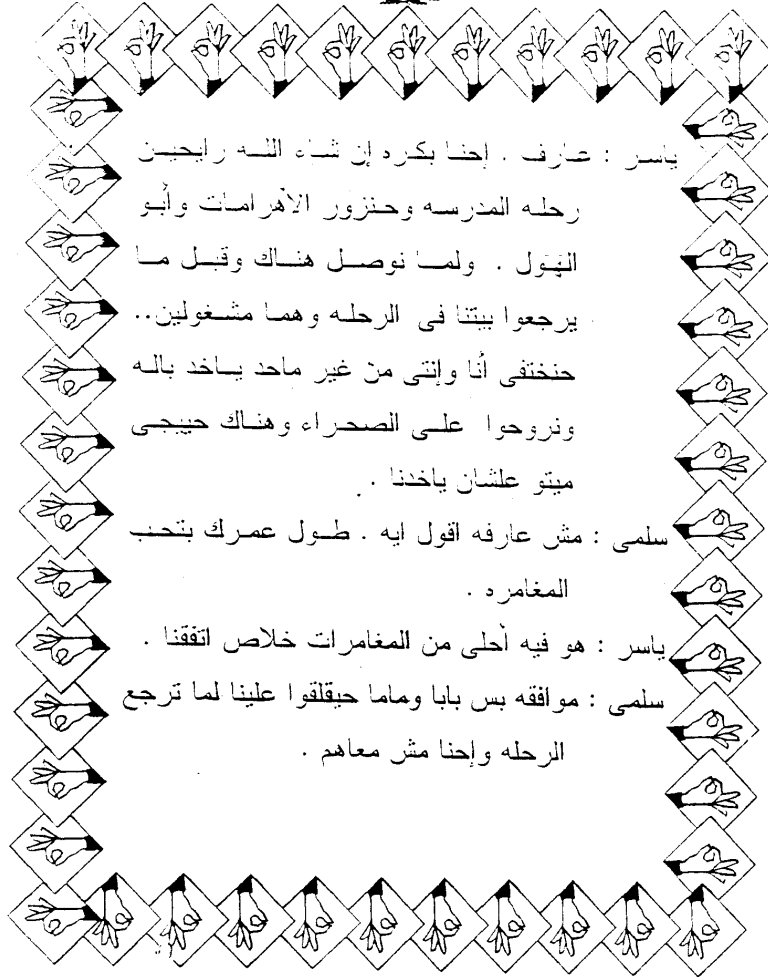 ياسر : عارف . إحنا بكره إن شاء الله رايحين
رحله المدرسه وحنزور الأهرامات وأبو
الهول . ولما نوصل هناك وقبل ما
يرجعوا بيتنا فى الرحله وهما مشغولين..
حنختفى أنا وإنتى من غير ماحد ياخد باله
ونروحوا على الصحراء وهناك حييجى
ميتو علشان ياخدنا .
سلمى : مش عارفه اقول ايه . طول عمرك بتحب
المغامره .
ياسر : هو فيه أحلى من المغامرات خلاص اتفقنا .
سلمى : موافقه بس بابا وماما حيقلقوا علينا لما ترجع
الرحله وإحنا مش معاهم .